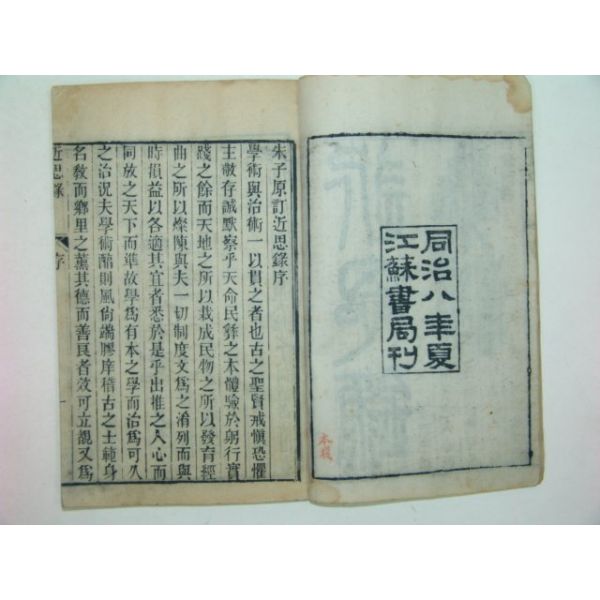 同治八年夏
江蘇書局刊
本衙
朱子原訂近思錄序
學術與治術一以貫之者也古之聖賢戒愼恐懼
主敬存誠默察乎天命民彝之本體驗於躬行實
踐之餘而天地之所以栽成民物之所以發育經
曲之所以燦陳與夫一切制度文爲之淆列而與
時損益以各適其宜者悉於是乎出推之人心而
同放之天下而準故學爲有本之學而治爲可久
之治況夫學術醇則風尙端膠庠稽古之士範身
名敎而鄉里之薰其德而善良者效可立覩又爲
近思錄
序
一